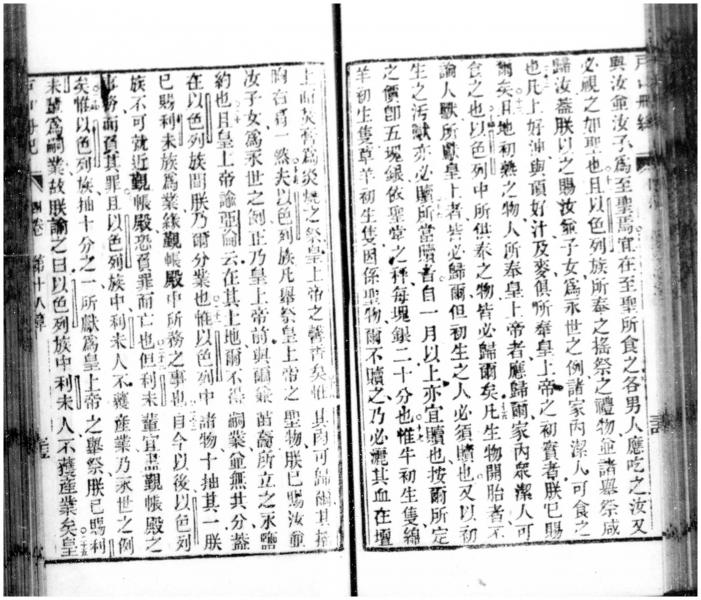 與汝爺汝子爲至聖焉宜在至聖所食之各男人應吃之汝又
必視之如聖也且以色列族所奉之搖祭之禮物並諸舉祭咸
歸汝蓋朕以之賜汝爺子女爲永世之例諸家內潔人可食之
也凡上好油與頂好汁及麥俱所奉皇上帝之初實者朕已賜
爾矣且地初熟之物人所奉皇上帝者應歸爾家內眾潔人可
食之也以色列中所供奉之物皆必歸爾矣凡生物開胎者不
論人獸所獻皇上者皆必歸爾但初生之人必須贖也又以初
生之汚獸亦必贖所當贖者自一月以上亦宜贖也按爾所定
之價卽五塊銀依聖堂之秤每塊銀二十分也惟牛初生隻綿
羊初生隻草羊初生隻因係聖物爾不贖之乃必灑其血在壇
上而焚膏爲炎燒之祭皇上帝之馨香矣惟其肉可歸爾其搖
胸右肩一然夫以色列族凡舉祭皇上帝之聖物朕已賜汝爺
汝子女爲永世之例正乃皇上帝前與爾並苗裔所立之永鹽
約也且皇上帝諭亞倫云在其土地爾不得嗣業並無其分蓋
在以色列族間朕乃爾分業也惟以色列中諸物十抽其一朕
已賜利未族爲業緣覲帳殿中所務之事也自今以後以色列
族不可就近覲帳殿恐召罪而亡也但利未輩宜盡覲帳殿之
事務而負其罪且以色列族中利未人不獲產業乃永世之例
矣惟以色列族抽十分之一所獻爲皇上帝之舉祭朕已賜利
未族爲嗣業故朕諭之曰以色列族中利未人不獲產業矣皇
四卷 第十八章